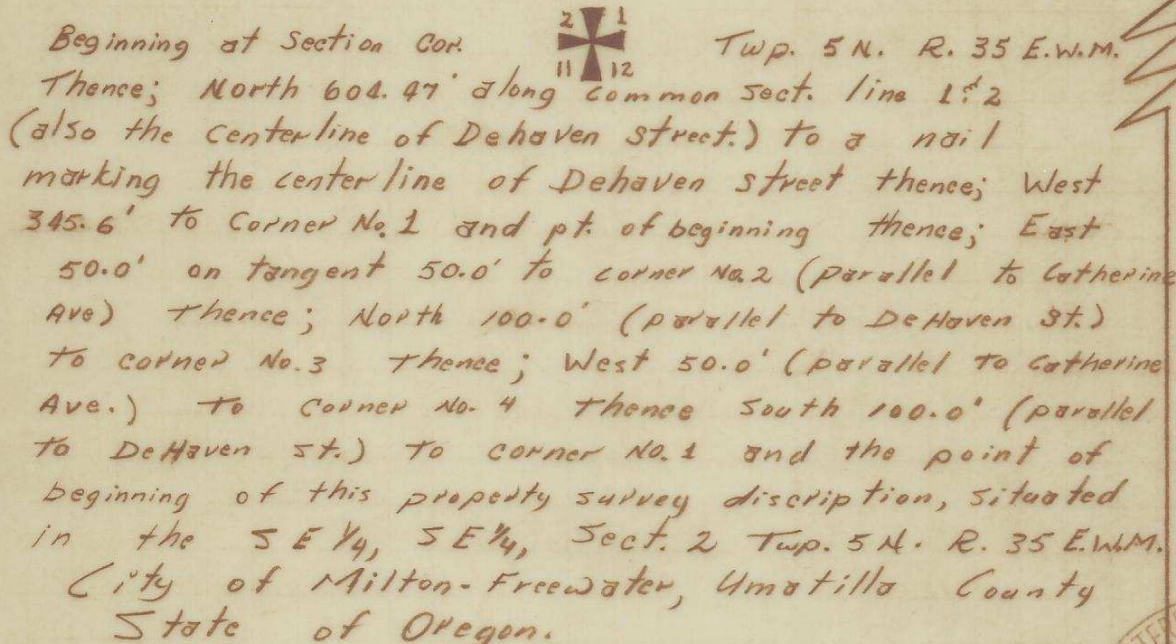 Beginning at Section Cor. 2 1 11 12 Twp. 5 N. R. 35 E.W.M.
Thence; North 604.47' along common sect. line 1 & 2
(also the centerline of Dehaven street.) to a nail
marking the centerline of Dehaven street thence; West
345.6' to Corner No. 1 and pt. of beginning thence; East
50.0' on tangent 50.0' to corner No. 2 (parallel to Catherine
Ave) Thence; North 100.0' (parallel to DeHaven St.)
to corner No. 3 Thence; West 50.0' (parallel to Catherine
Ave.) to Corner No. 4 Thence South 100.0' (parallel
to DeHaven St.) to corner No. 1 and the point of
beginning of this property survey discription, situated
in the SE 1/4, SE 1/4, Sect. 2 Twp. 5 N. R. 35 E.W.M.
City of Milton-Freewater, Umatilla County
State of Oregon.